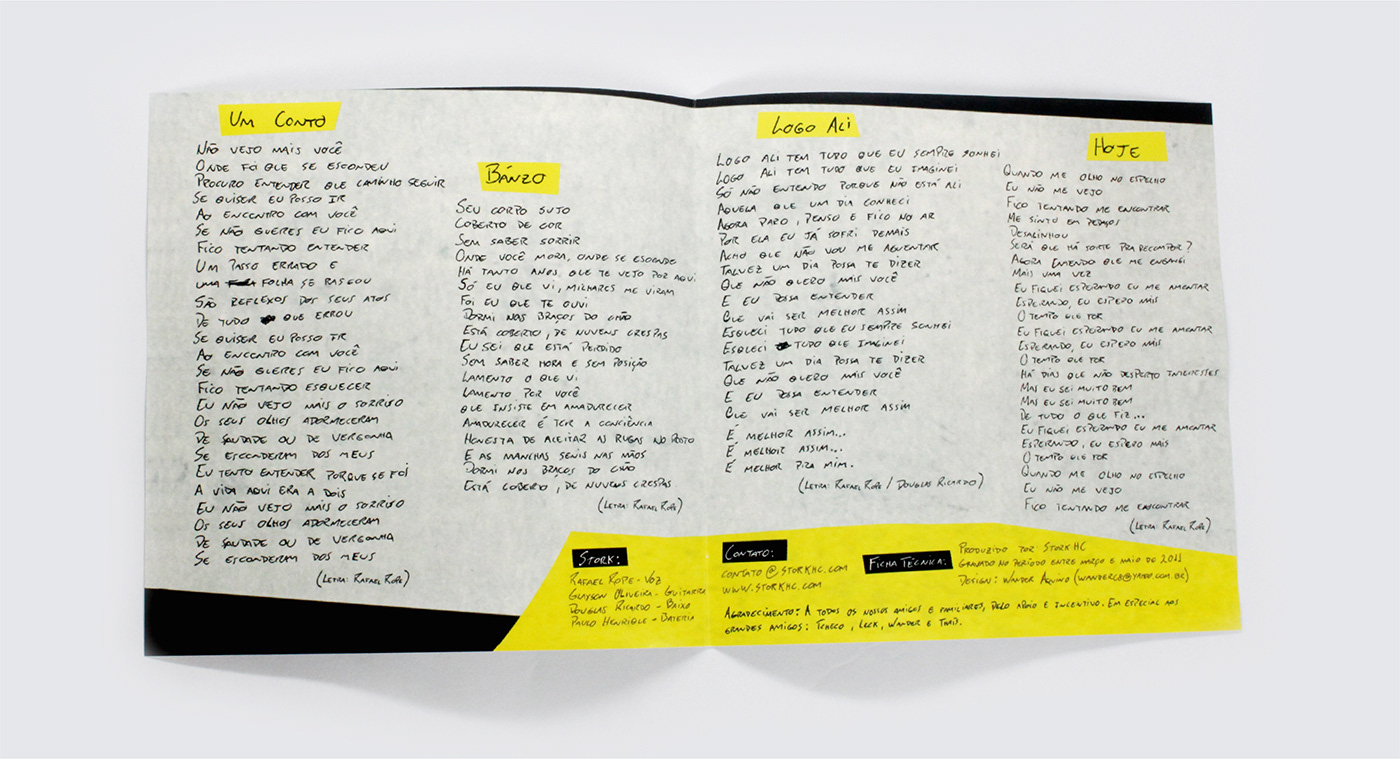 UM CONTO
NÃO VEJO MAIS VOCÊ
ONDE FOI QUE SE ESCONDEU
PROCURO ENTENDER QUE CAMINHO SEGUIR
SE QUISER EU POSSO IR
AO ENCONTRO COM VOCÊ
SE NÃO QUERES EU FICO AQUI
FICO TENTANDO ENTENDER
UM PASSO ERRADO E
UMA FOLHA SE RASGOU
SÃO REFLEXOS DOS SEUS ATOS
DE TUDO QUE ERROU
SE QUISER EU POSSO IR
AO ENCONTRO COM VOCÊ
SE NÃO QUERES EU FICO AQUI
FICO TENTANDO ESQUECER
EU NÃO VEJO MAIS O SORRISO
OS SEUS OLHOS ADORMECERAM
DE SAUDADE OU DE VERGONHA
SE ESCONDERAM DOS MEUS
EU TENTO ENTENDER PORQUE SE FOI
A VIDA AQUI ERA A DOIS
EU NÃO VEJO MAIS O SORRISO
OS SEUS OLHOS ADORMECERAM
DE SAUDADE OU DE VERGONHA
SE ESCONDERAM DOS MEUS
(LETRA: RAFAEL ROPE)
BÁNZO
SEU CORPO SUJO
COBERTO DE COR
SEM SABER SORRIR
ONDE VOCÊ MORA, ONDE SE ESCONDE
HÁ TANTO ANOS, QUE TE VEJO POR AQUI
SÓ EU QUE VI, MILHARES ME VIRAM
FOI EU QUE TE OUVI
DORMI NOS BRAÇOS DO CHÃO
ESTÁ COBERTO, DE NUVENS CRESPAS
EU SEI QUE ESTÁ PERDIDO
SEM SABER HORA E SEM POSIÇÃO
LAMENTO O QUE VI
LAMENTO POR VOCÊ
QUE INSISTE EM AMADURECER
AMADURECER É TER A CONCIÊNCIA
HONESTA DE ACEITAR AS RUGAS NO ROSTO
E AS MANCHAS SENIS NAS MÃOS
DORMI NOS BRAÇOS DO CHÃO
ESTÁ COBERTO, DE NUVENS CRESPAS
(LETRA: RAFAEL ROPE)
LOGO ALI
LOGO ALI TEM TUDO QUE EU SEMPRE SONHEI
LOGO ALI TEM TUDO QUE EU IMAGINEI
SÓ NÃO ENTENDO PORQUE NÃO ESTÁ ALI
AQUELA QUE UM DIA CONHECI
AGORA PARO, PENSO E FICO NO AR
POR ELA EU JÁ SOFRI DEMAIS
ACHO QUE NÃO VOU ME AGUENTAR
TALVEZ UM DIA POSSA TE DIZER
QUE NÃO QUERO MAIS VOCÊ
E EU POSSA ENTENDER
QUE VAI SER MELHOR ASSIM
ESQUECI TUDO QUE EU SEMPRE SONHEI
ESQUECI TUDO QUE IMAGINEI
TALVEZ UM DIA POSSA TE DIZER
QUE NÃO QUERO MAIS VOCÊ
E EU POSSA ENTENDER
QUE VAI SER MELHOR ASSIM
É MELHOR ASSIM...
É MELHOR ASSIM...
É MELHOR PRA MIM.
(LETRA: RAFAEL ROPE / DOUGLAS RICARDO)
HOJE
QUANDO ME OLHO NO ESPELHO
EU NÃO ME VEJO
FICO TENTANDO ME ENCONTRAR
ME SINTO EM PEDAÇOS
DESALINHOU
SERÁ QUE HÁ SORTE PRA RECOMPOR?
AGORA ENTENDO QUE ME ENGANEI
MAIS UMA VEZ
EU FIQUEI ESPERANDO EU ME AMONTAR
ESPERANDO, EU ESPERO MAIS
O TEMPO QUE FOR
EU FIQUEI ESPERANDO EU ME AMONTAR
ESPERANDO, EU ESPERO MAIS
O TEMPO QUE FOR
HÁ DIAS QUE NÃO DESPERTO INTERESSES
MAS EU SEI MUITO BEM
MAS EU SEI MUITO BEM
DE TUDO O QUE FIZ...
EU FIQUEI ESPERANDO EU ME AMONTAR
ESPERANDO, EU ESPERO MAIS
O TEMPO QUE FOR
QUANDO ME OLHO NO ESPELHO
EU NÃO ME VEJO
FICO TENTANDO ME ENCONTRAR
(LETRA: RAFAEL ROPE)
STORK:
RAFAEL ROPE - VOZ
GLAYSON OLIVEIRA - GUITARRA
DOUGLAS RICARDO - BAIXO
PAULO HENRIQUE - BATERIA
CONTATO:
CONTATO@STORKHC.COM
WWW.STORKHC.COM
FICHA TÉCNICA:
PRODUZIDO POR: STORK HC
GRAVADO NO PERÍODO ENTRE MARÇO E MAIO DE 2011
DESIGN: WANDER AQUINO (WANDERCB@YAHOO.COM.BR)
AGRADECIMENTO: A TODOS OS NOSSOS AMIGOS E FAMILIARES, PELO APOIO E INCENTIVO. EM ESPECIAL AOS
GRANDES AMIGOS: TCHECO, LECK, WANDER E THAÍS.